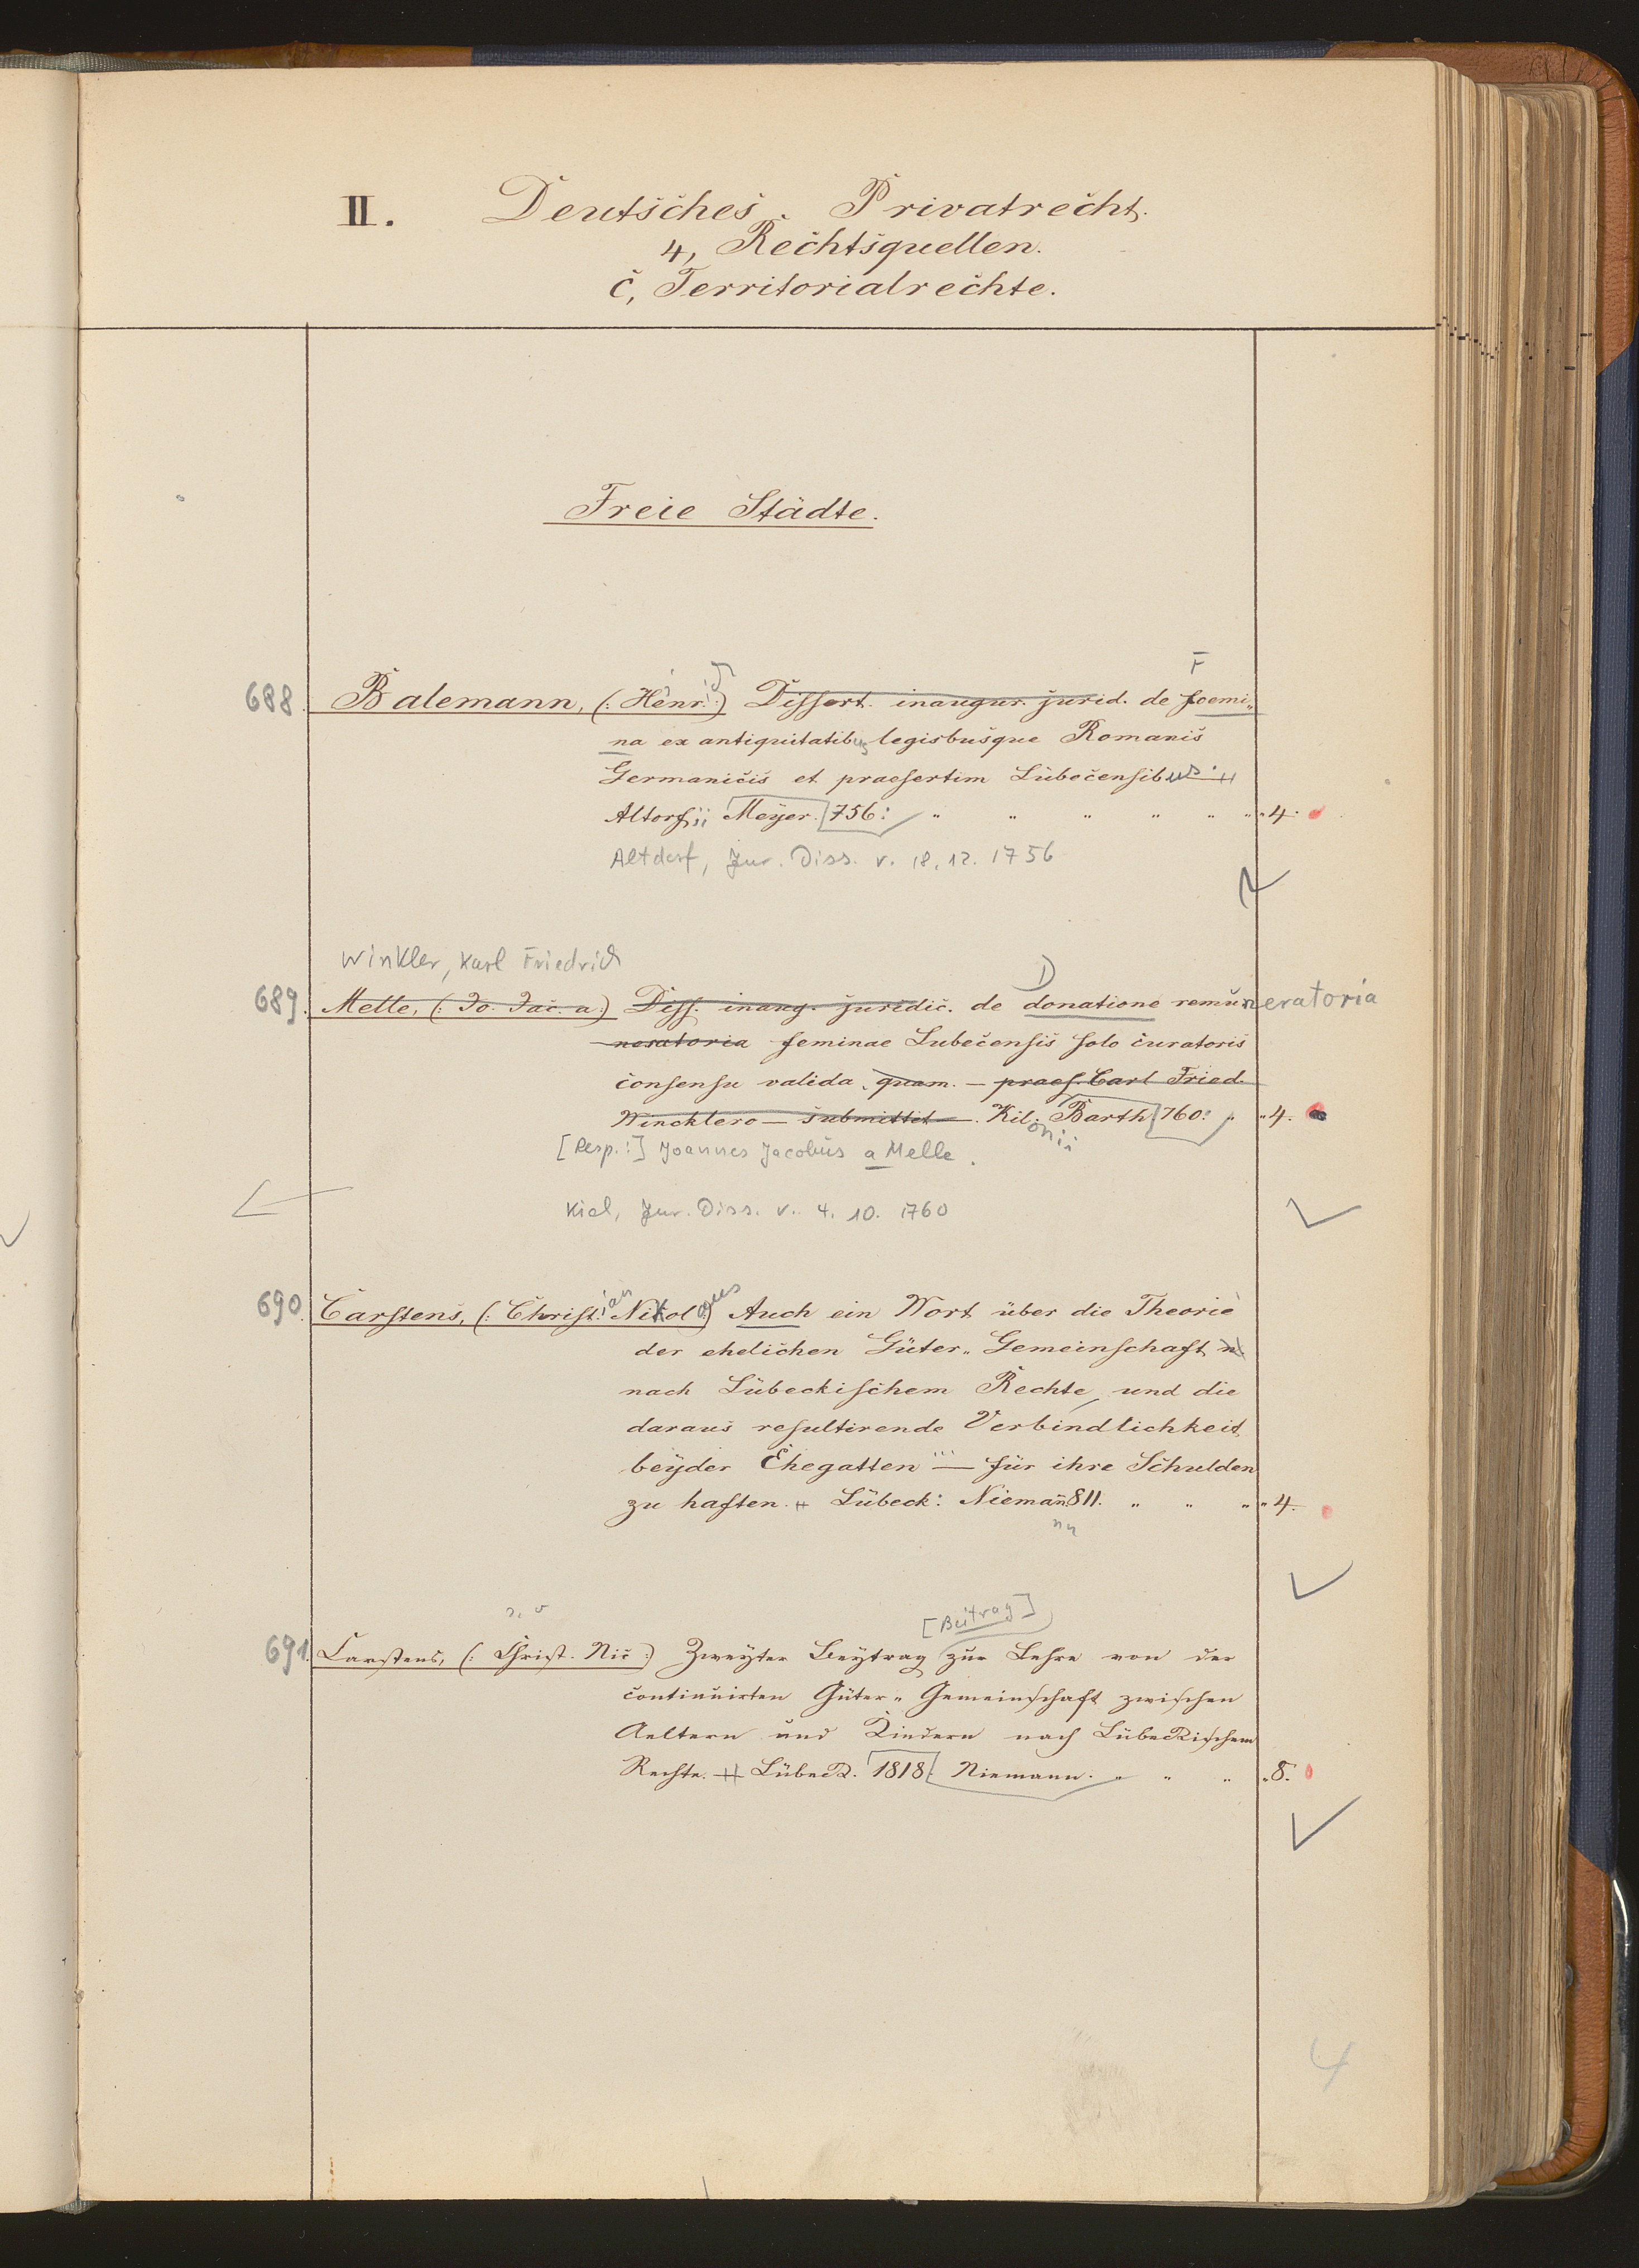 II. Deutsches Privatrecht.
4, Rechtsquellen.
c, Territorialrechte.
Freie Städte.
F
688. Balemann, (: Henr. :) Dissert. inaugur. jurid. de foemi„
na ex antiquitatibus legisbusque Romanis
Germanicis et praesertim Lubecensibus.
Altorfii Meyer. 756: " " " " " " 4.
Altdorf, Jur. Diss. v. 18.12.1756
Winkler, Karl Friedrich
D
689. Melle, (: Jo. Jac. a :) Diss. inaug. juridic. de donatione remuneratoria
neratoria feminae Lubecensis solo curatoris
consensu valida, quam. — praes. Carl Fried.
Wincklero — submittit —. Kil. Barth 760: " " 4.
onii
[Resp.:] Joannes Jacobus a Melle.
Kiel, Jur. Diss. v. 4. 10. 1760
690. Carstens, (: Christian Nikolaus) Auch ein Wort über die Theorie
der ehelichen Güter„ Gemeinschaft n.
nach Lübeckischem Rechte, und die
daraus resultirende Verbindlichkeit,
beyder Ehegatten ... — für ihre Schulden
zu haften. Lübeck: Niemañ 811. " " " " 4.
nn
[Beitrag]
691. Carstens, (: Christ. Nic :) Zweyter Beytrag zur Lehre von der
continuirten Güter„ Gemeinschaft zwischen
Aeltern und Kindern nach Lübeckischem
Rechte. Lübeck. 1818. Niemann. " " " " 8.
4